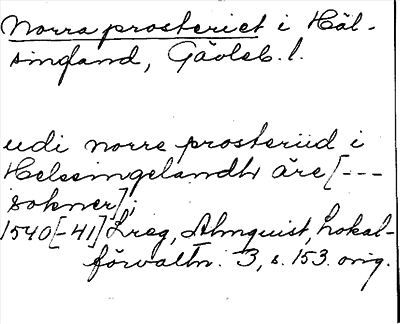 Norra prosteriet i Häl-
singland, Gävleb. l.
udi norre prosteriid i
Helsingelandh äre [---
sokner];
1540[-41] Lreg, Almquist, Lokal-
förvaltn. 3, s. 153. orig.